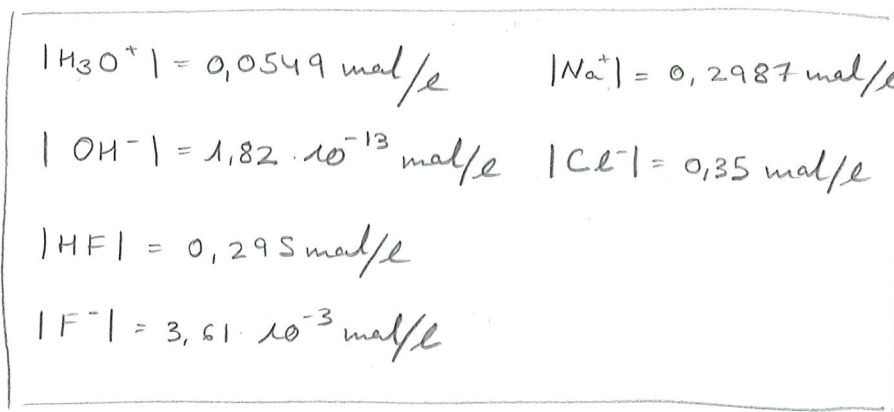 |H3O⁺| = 0,0549 mol/l |Na⁺| = 0,2987 mol/l
|OH⁻| = 1,82 · 10⁻¹³ mol/l |Cl⁻| = 0,35 mol/l
|HF| = 0,295 mol/l
|F⁻| = 3,61 · 10⁻³ mol/l